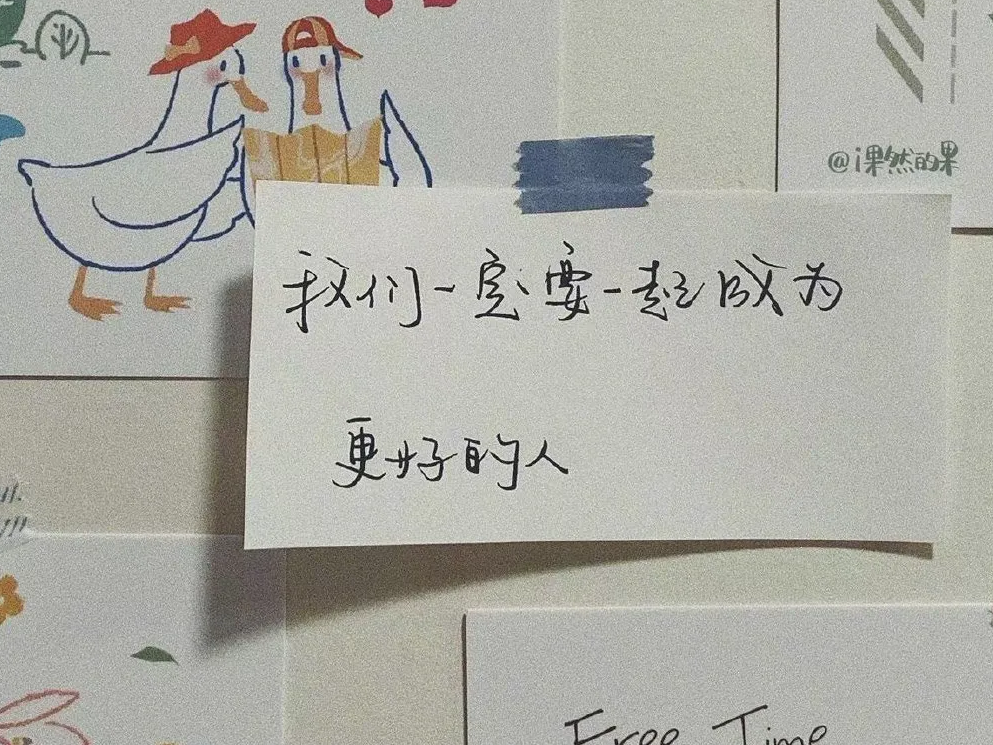 @i果然的果
我们一定要一起成为
更好的人
Free Time